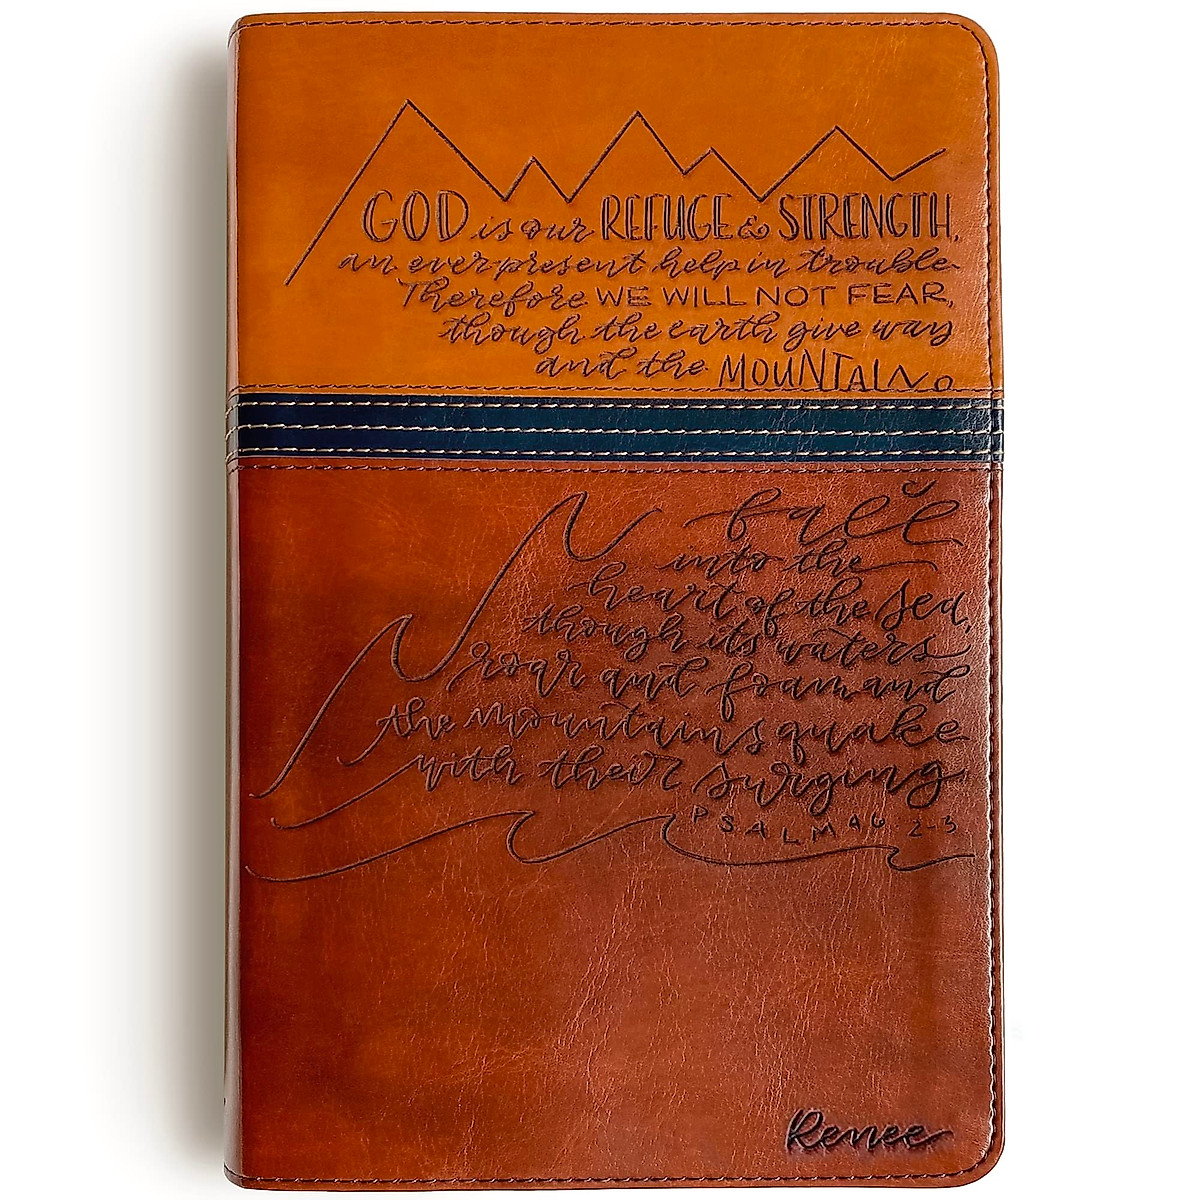 GOD is our REFUGE & STRENGTH,
an ever present help in trouble
Therefore WE WILL NOT FEAR,
though the earth give way
and the MOUNTAINS
fall
into the
heart of the sea,
though its waters
roar and foam and
the mountains quake
with their surging
PSALM 46 2-3
Renee